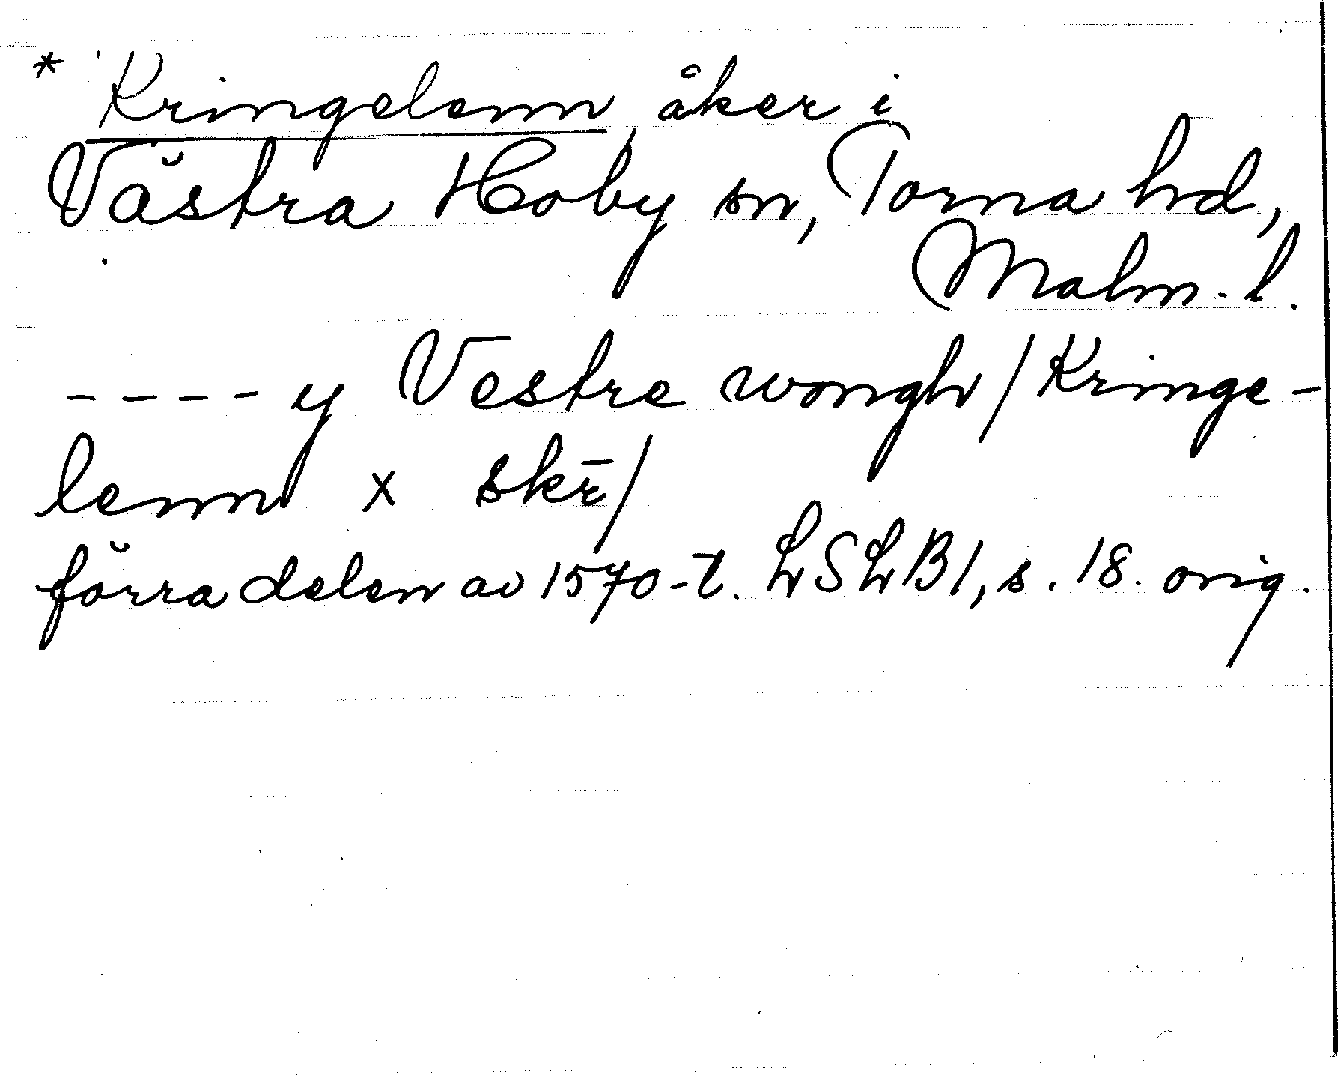 * Kringelenn, åker i
Västra Hoby sn, Torna hd,
Malm. l.
- - - - y Vestre wongh / Kringe-
lenn x skr̄ /
förra delen av 1570-t. LSLB1, s. 18. orig.